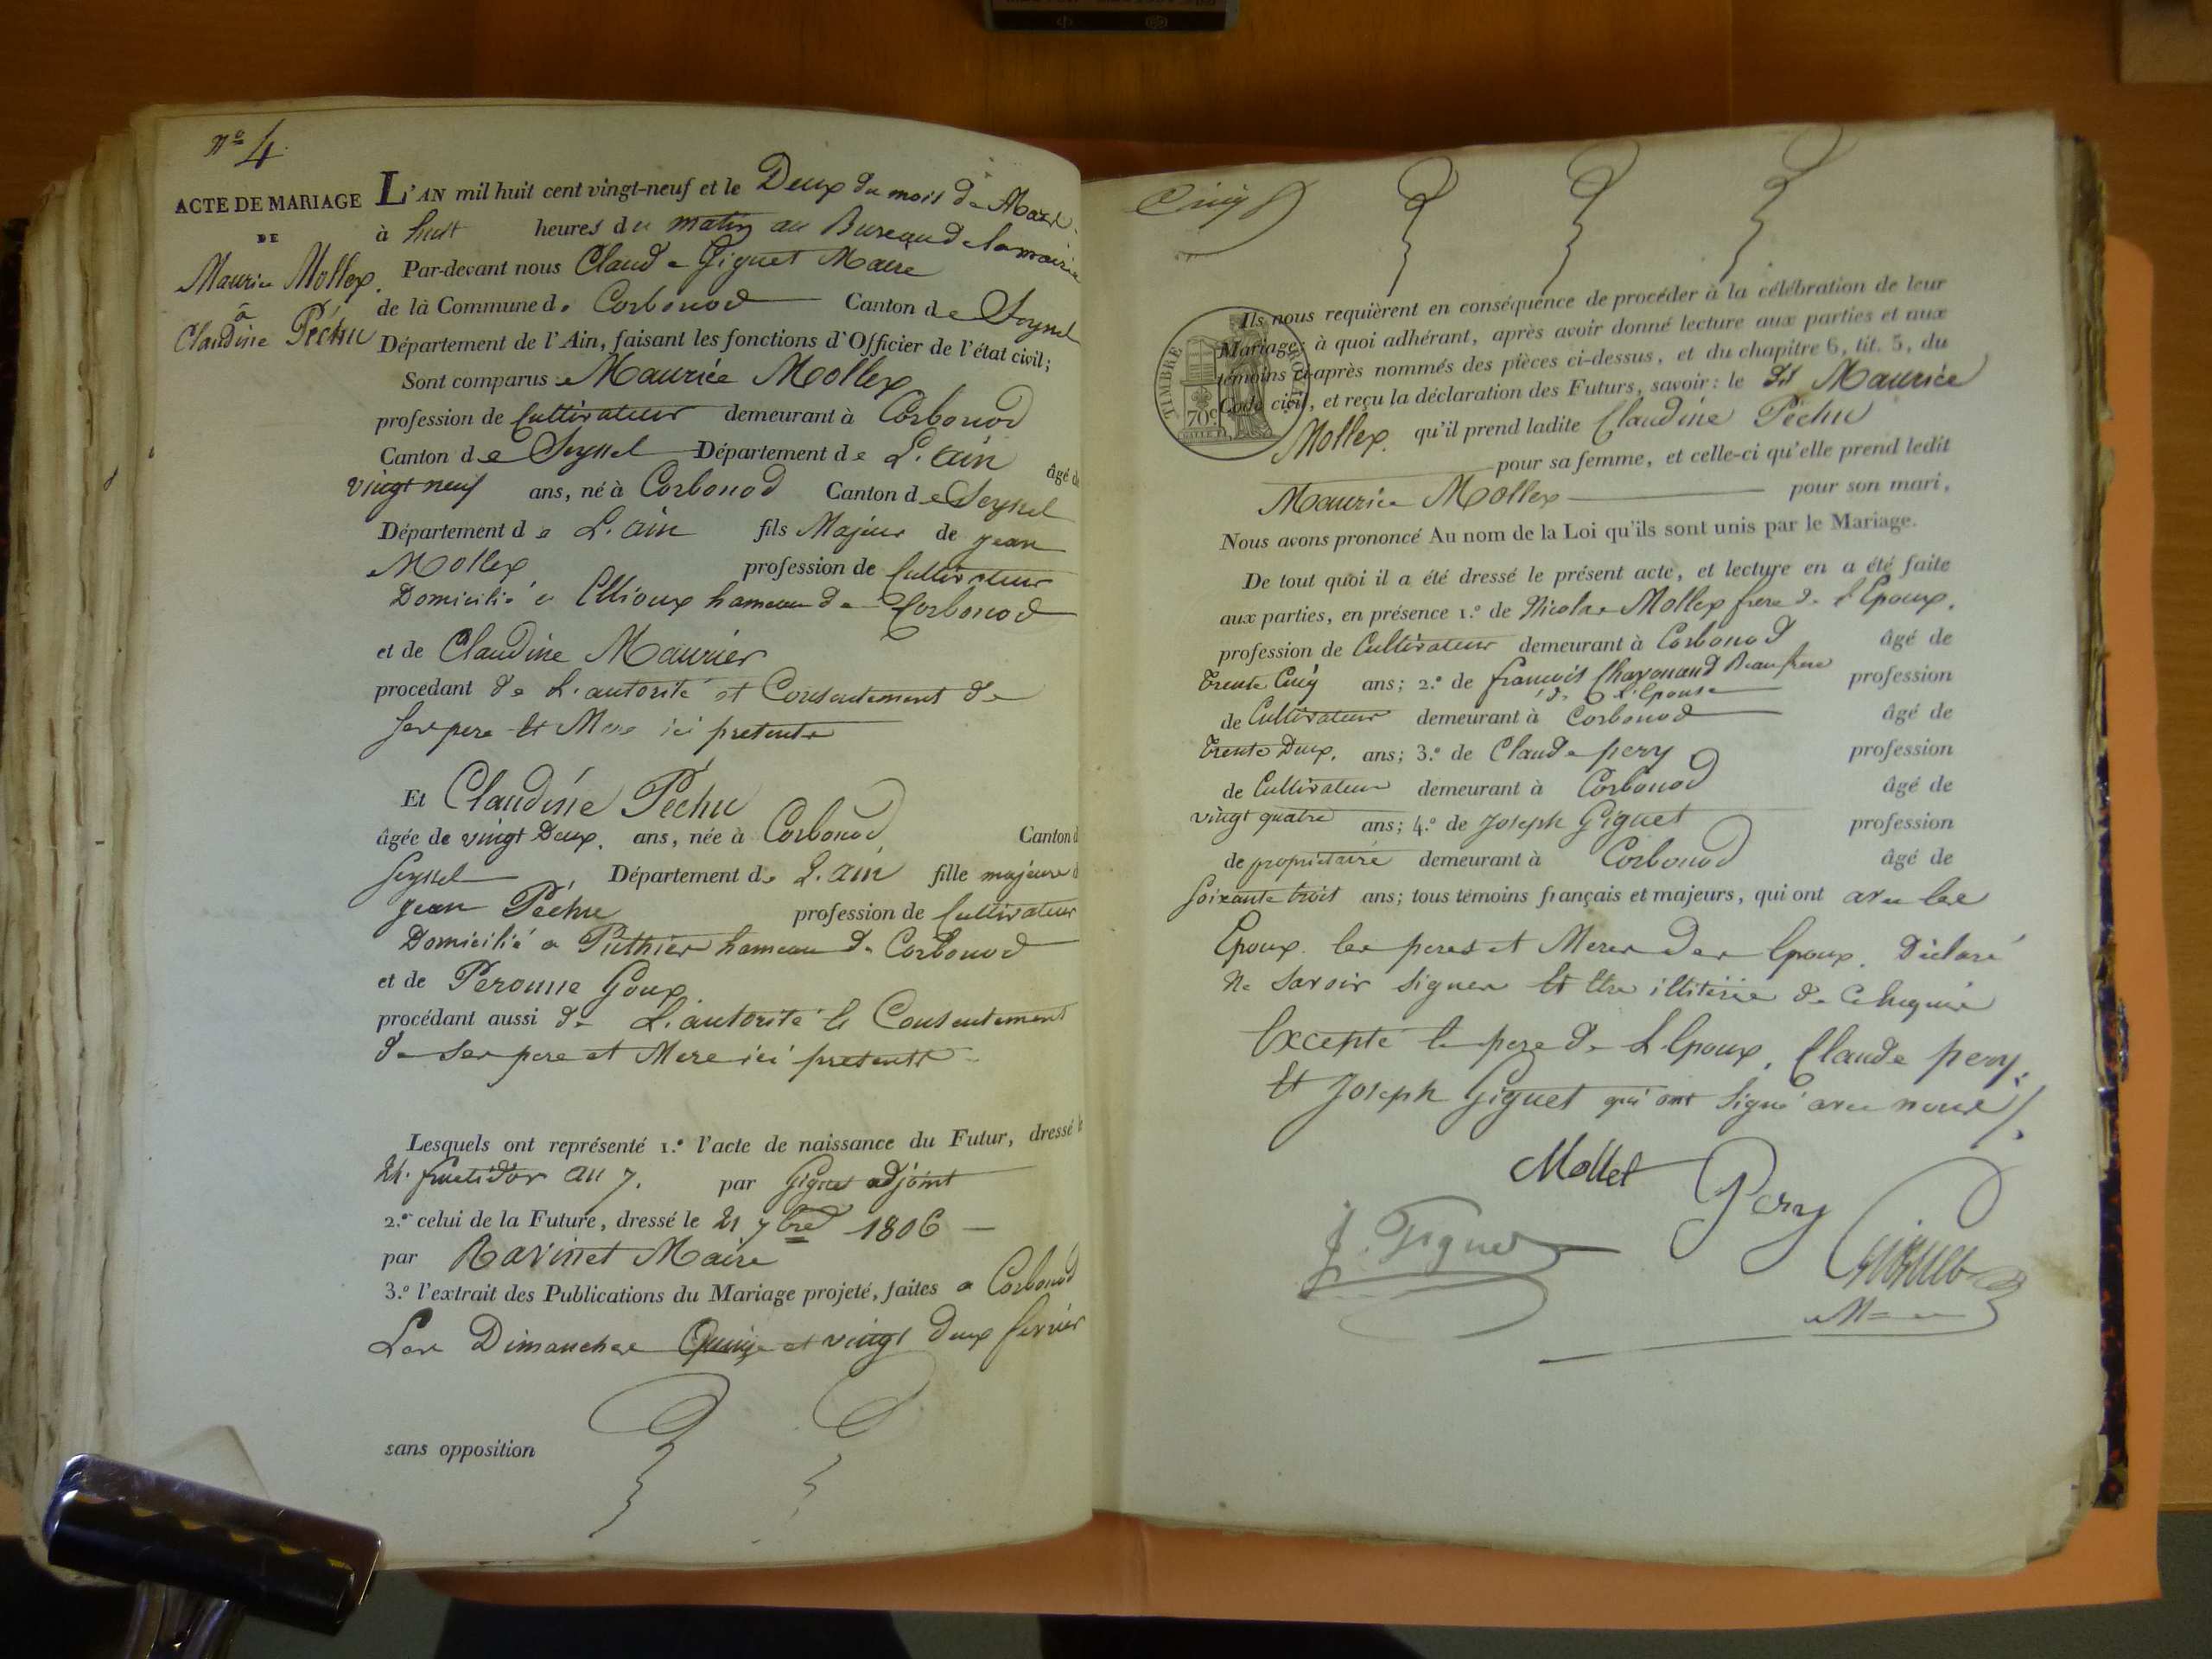 N° 4
ACTE DE MARIAGE
DE
Maurice Mollex
à
Claudine Péchu
L'AN mil huit cent vingt-neuf et le Deux du mois de Mars
à huit heures du matin au Bureau de la mairie
Par-devant nous Claude Giguet Maire
de la Commune de Corbonod Canton de Seyssel
Département de l'Ain, faisant les fonctions d'Officier de l'état civil;
Sont comparus Maurice Mollex
profession de Cultivateur demeurant à Corbonod
Canton de Seyssel Département de L'ain âgé de
vingt neuf ans, né à Corbonod Canton de Seyssel
Département de L'ain fils Majeur de jean
Mollex profession de Cultivateur
Domicilié a hameau de Corbonod
et de Claudine Maurier
procédant de L'autorité et Consentement de
ses pere et Mere ici presents
Et Claudine Péchu
âgée de vingt Deux ans, née à Corbonod Canton d
Seyssel Département de L'ain fille majeure d
jean Péchu profession de Cultivateur
Domicilié a Puthier hameau de Corbonod
et de Peronne Goux
procédant aussi de L'autorité le Consentement
de ses pere et Mere ici presents
Lesquels ont représenté 1.° l'acte de naissance du Futur, dressé le
fructidor an 7. par Giguet adjoint
2.° celui de la Future, dressé le 21 7bre 1806
par Ravinet Maire
3.° l'extrait des Publications du Mariage projeté, faites a Corbonod
Les Dimanches Quinze et vingt deux fevrier
sans opposition
Cinq
TIMBRE ROYAL
70c
Ils nous requièrent en conséquence de procéder à la célébration de leur
Mariage; à quoi adhérant, après avoir donné lecture aux parties et aux
témoins ci-après nommés des pièces ci-dessus, et du chapitre 6, tit. 5, du
Code civil, et reçu la déclaration des Futurs, savoir: le dit Maurice
Mollex qu'il prend ladite Claudine Péchu
pour sa femme, et celle-ci qu'elle prend ledit
Maurice Mollex pour son mari,
Nous avons prononcé Au nom de la Loi qu'ils sont unis par le Mariage.
De tout quoi il a été dressé le présent acte, et lecture en a été faite
aux parties, en présence 1.° de Nicolas Mollex frere de l'Epoux,
profession de Cultivateur demeurant à Corbonod âgé de
Trente Cinq ans; 2.° de francois Chavonand Beau frere profession
de l'Epouse
de Cultivateur demeurant à Corbonod âgé de
Trente Deux, ans; 3.° de Claude pery profession
de Cultivateur demeurant à Corbonod âgé de
vingt quatre ans; 4.° de Joseph Giguet profession
de propriétaire demeurant à Corbonod âgé de
soixante trois ans; tous témoins français et majeurs, qui ont avec les
Epoux les peres et Meres des Epoux Déclaré
Ne savoir signer Et Etre illitéré de Ce Enquis
Excepté le pere de L'Epoux, Claude pery,
Et Joseph Giguet qui ont signé avec nous
Mollet Pery
J. Giguet Giguet